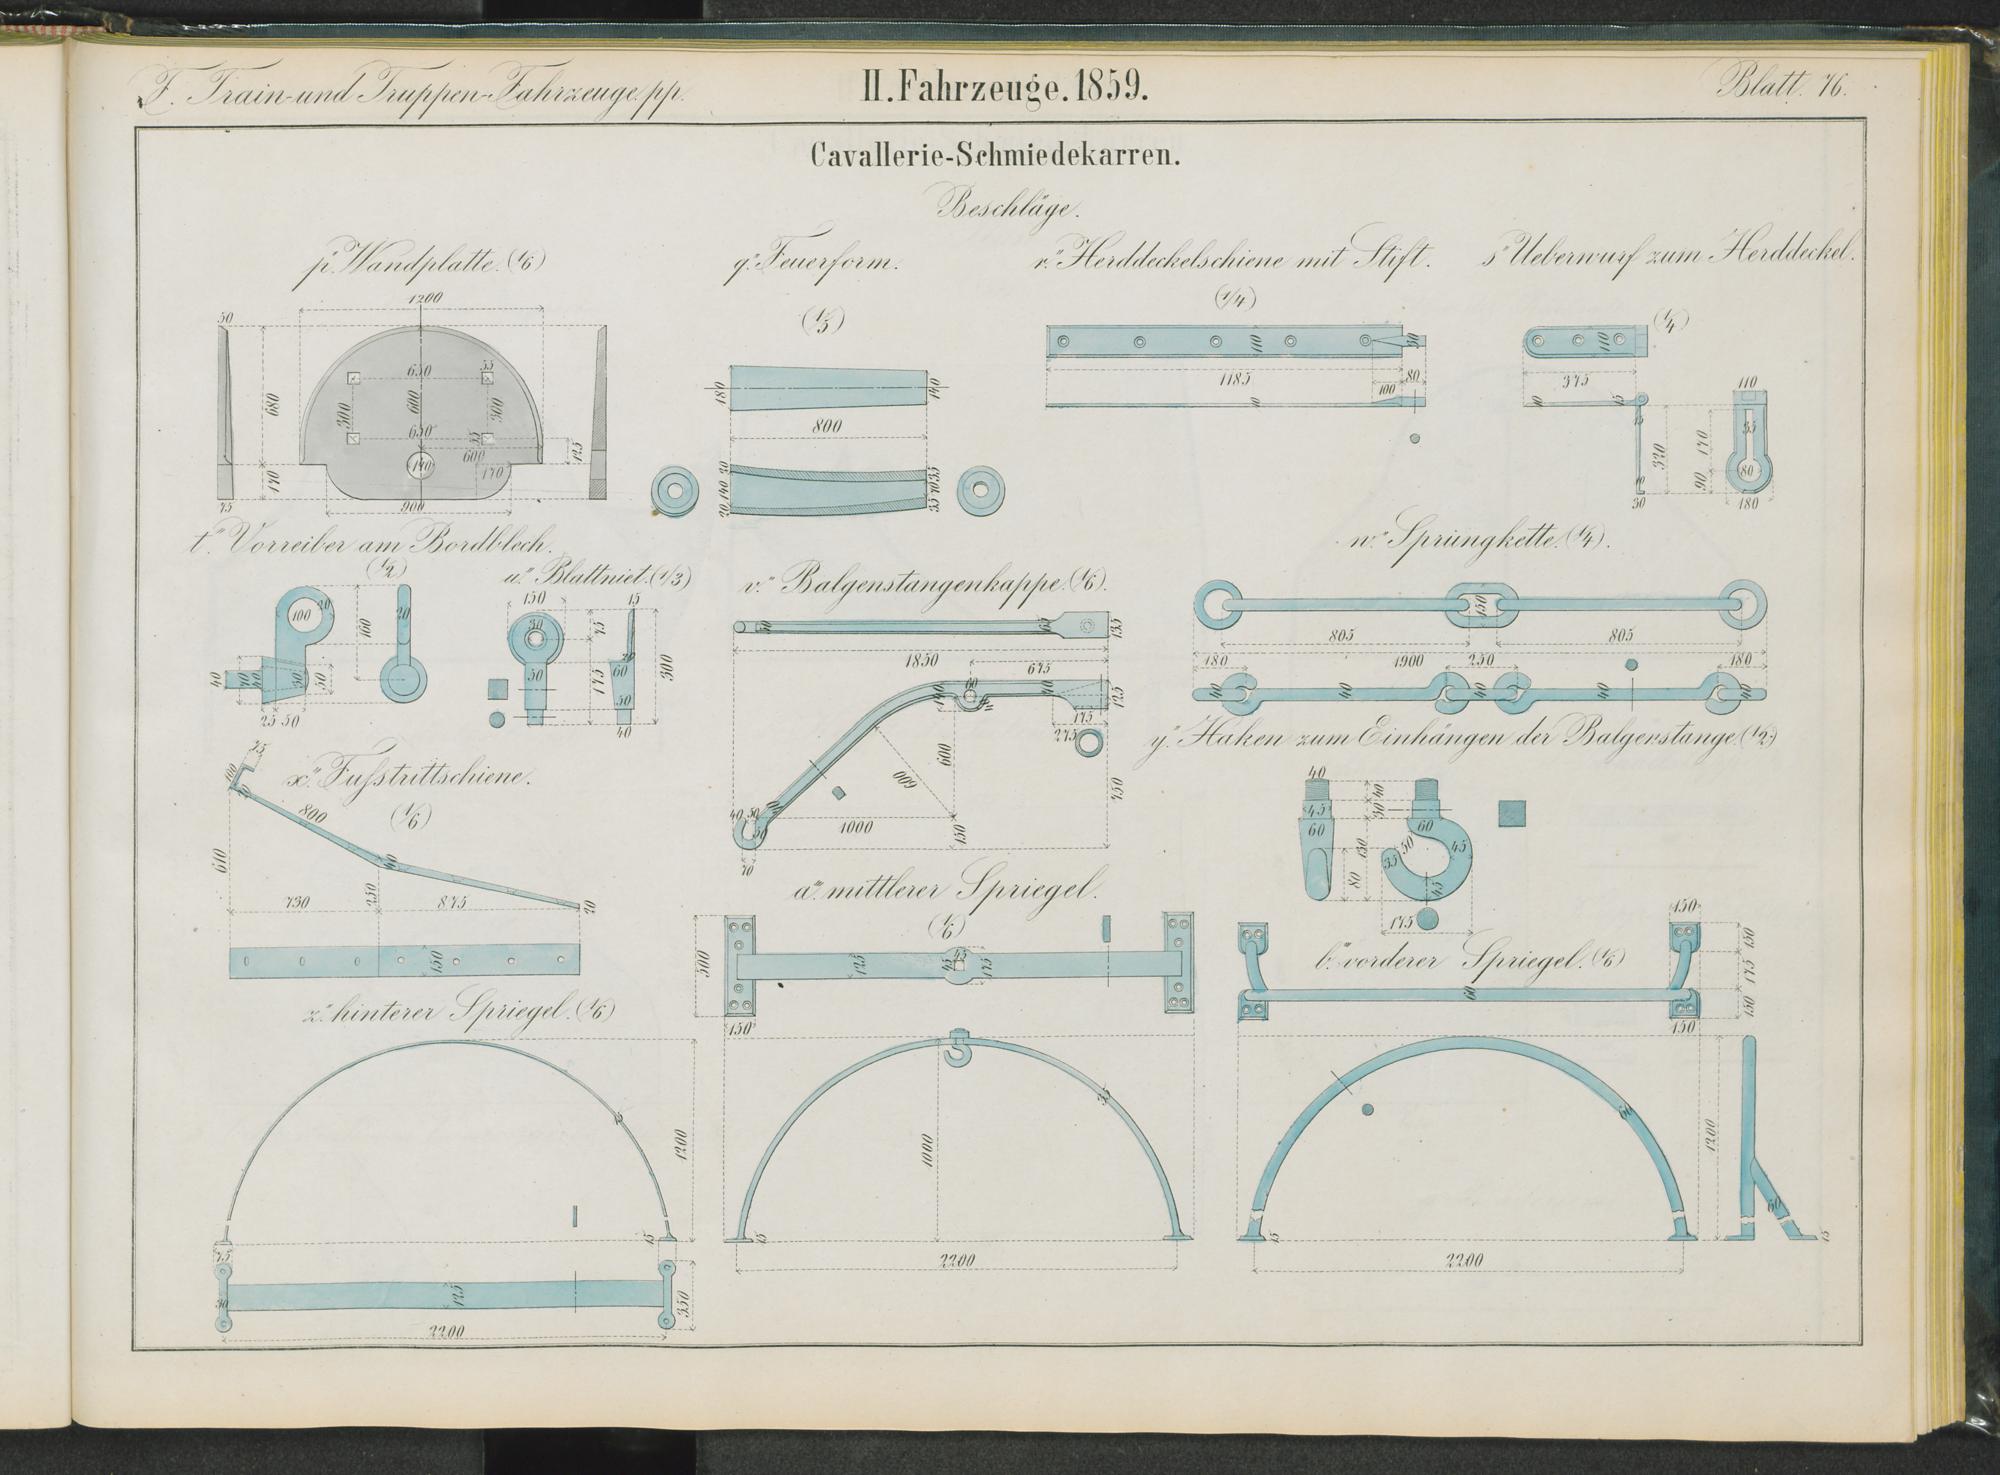 F. Train- und Truppen-Fahrzeuge pp.
II. Fahrzeuge. 1859.
Blatt. 76.
Cavallerie-Schmiedekarren.
Beschläge.
p." Wandplatte. (1/6)
1200
50
650
55
680
300
600
300
650
55
600
125
140
170
170
75
900
q." Feuerform.
(1/5)
180
140
800
30
140
20
35
70
55
r." Herddeckelschiene mit Stift.
(1/4)
110
50
1185
100
80
10
s." Ueberwurf zum Herddeckel.
(1/4)
110
375
10
15
110
15
320
170
35
80
90
10
30
180
t." Vorreiber am Bordblech.
(1/2)
100
20
160
20
40
40
50
50
25
50
u." Blattniet. (1/3)
150
15
30
75
20
50
175
60
300
50
40
v." Balgenstangenkappe. (1/6)
50
65
135
1850
675
60
40
125
175
275
600
600
750
1000
150
40
50
50
70
w." Sprungkette. (1/4).
150
805
805
180
1900
250
180
40
40
40
40
40
x." Fußstrittschiene.
(1/6)
75
100
800
610
40
730
250
875
20
150
y." Haken zum Einhängen der Balgenstange. (1/2)
40
40
45
50
60
60
150
50
45
35
80
45
175
z." hinterer Spriegel. (1/6)
15
1200
15
75
30
125
350
2200
a.''' mittlerer Spriegel.
(1/6)
500
125
45
45
175
150
35
1000
15
2200
b.''' vorderer Spriegel. (1/6)
150
150
175
60
150
150
60
1200
60
15
15
2200